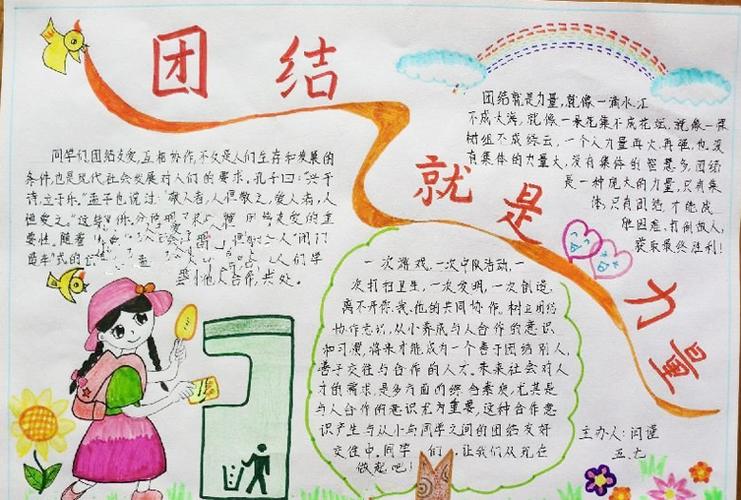 团结
就是
力量
同学们,团结友爱,互相协作,不仅是人们生存和发展的
条件,也是现代社会发展对人们的要求。孔子曰:"兴于
诗,立于乐。"孟子也说过"敬人者,人恒敬之,爱人者,人
恒爱之。"这些 团结友爱的重
要性。随着
式的
与他人合作,共处。
团结就是力量,就像一滴水,汇
不成大海,就像一朵花集不成花坛,就像一棵
树组不成绿云,一个人力量再大,再强,也没
有集体的力量大,没有集体的智慧多,团结
是一种庞大的力量,只有集
体,只有团结,才能战
胜困难,打倒敌人,
获取最终胜利!
一次游戏,一次中队活动,一
次打扫卫生,一次发明,一次创造,
离不开你、我、他的共同协作。树立团结
协作意识,从小养成与人合作的意识
和习惯,将来才能成为一个善于团结别人,
善于交往与合作的人才。未来社会对人
才的需求,是多方面的综合素质,尤其是
与人合作的意识尤为重要,这种合作意
识产生与从小与同学之间的团结友好
交往中。同学们,让我们从现在
做起吧!
主办人:闫谨